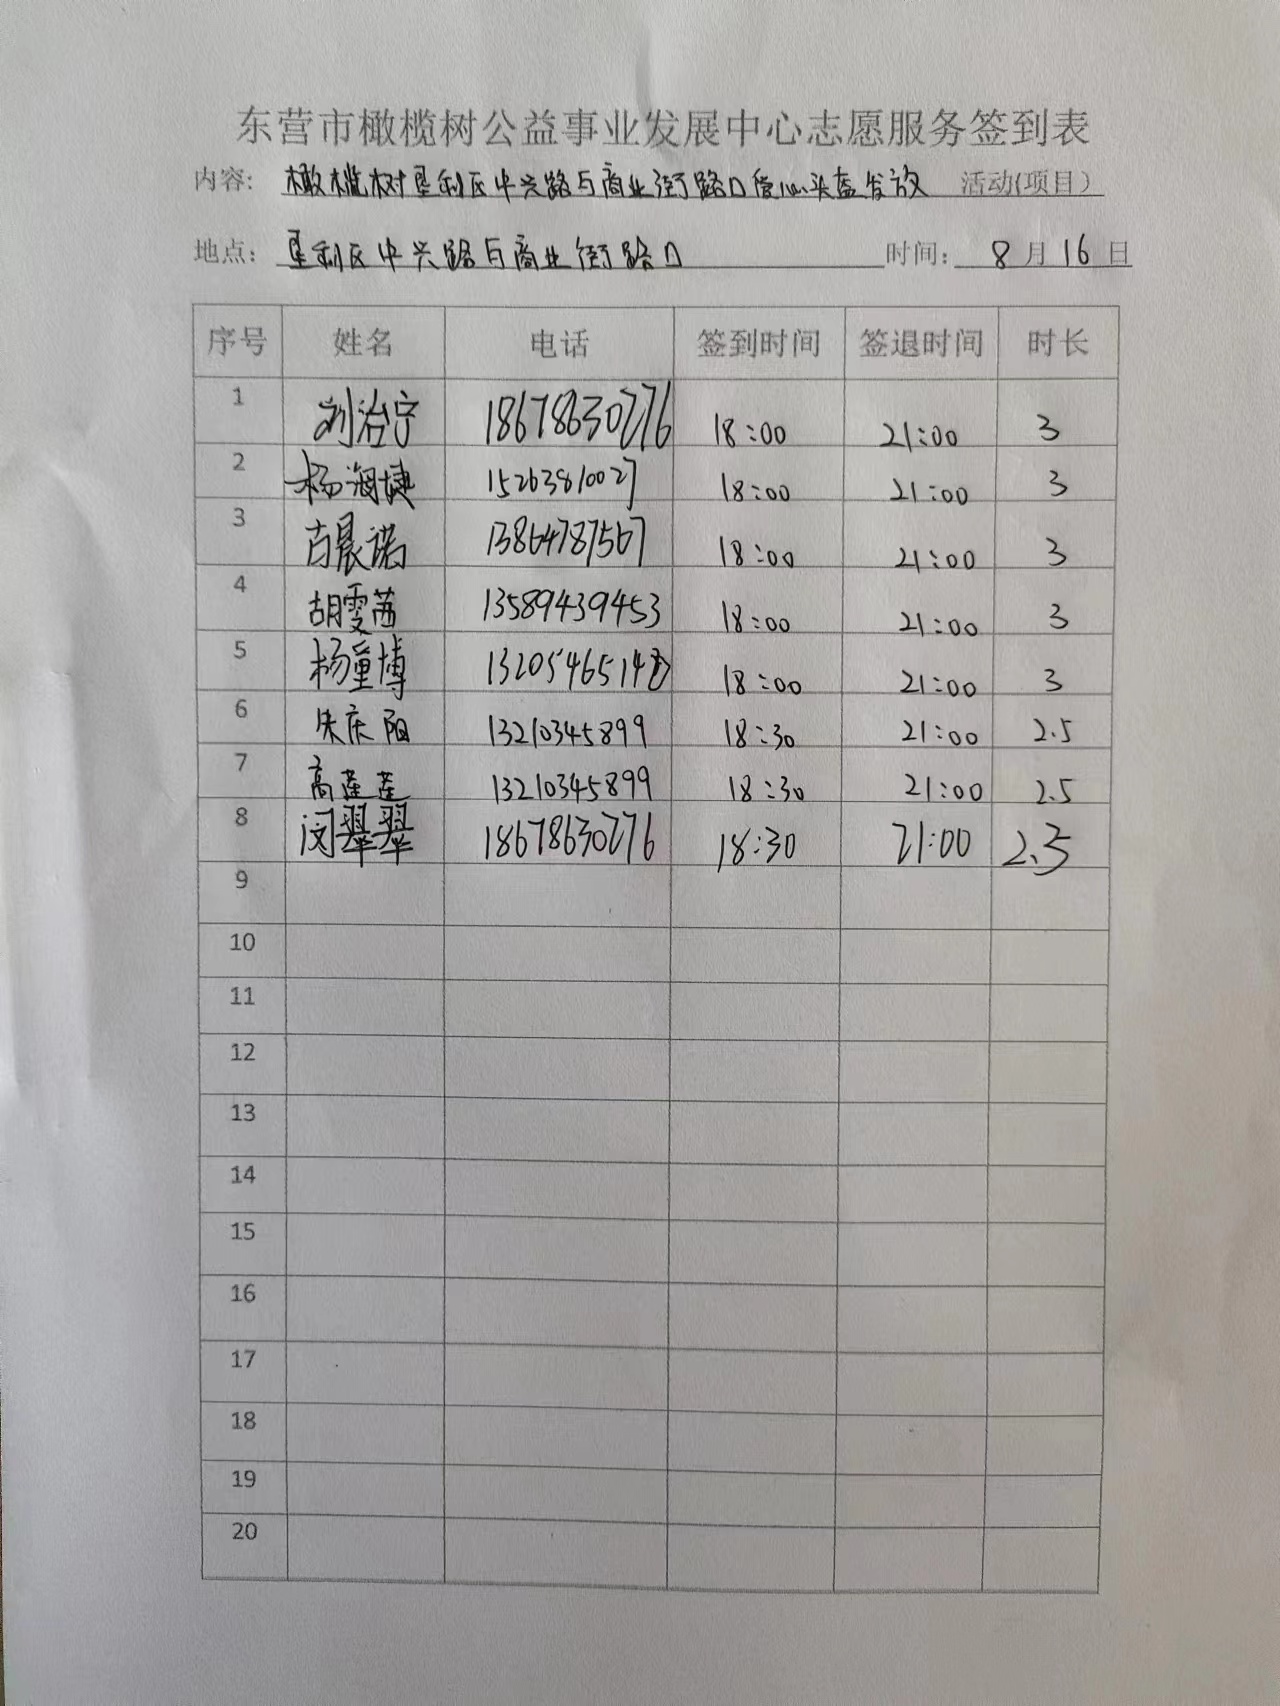 东营市橄榄树公益事业发展中心志愿服务签到表
内容: 橄榄树垦利区中兴路与商业街路口爱心头盔发放 活动(项目)
地点: 垦利区中兴路与商业街路口 时间: 8月16日
序号 姓名 电话 签到时间 签退时间 时长
1 刘治宁 18678630276 18:00 21:00 3
2 杨海捷 15263810027 18:00 21:00 3
3 古晨诺 13864787567 18:00 21:00 3
4 胡雯茜 13589439453 18:00 21:00 3
5 杨童博 18:00 21:00 3
6 朱庆阳 13210345899 18:30 21:00 2.5
7 高莲莲 13210345899 18:30 21:00 2.5
8 闵翠翠 18678630276 18:30 21:00 2.5
9
10
11
12
13
14
15
16
17
18
19
20